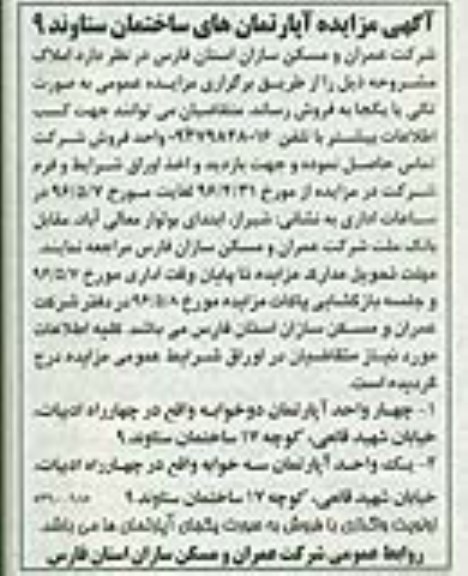 آگهی مزایده آپارتمان های ساختمان ستاوند ۹
شرکت عمران و مسکن سازان استان فارس در نظر دارد املاک
مشروحه ذیل را از طریق برگزاری مزایده عمومی به صورت
تکی یا یکجا به فروش رساند. متقاضیان می توانند جهت کسب
اطلاعات بیشتر با تلفن واحد فروش شرکت
تماس حاصل نموده و جهت بازدید و اخذ اوراق شرایط و فرم
شرکت در مزایده از مورخ ۹۶/۴/۳۱ لغایت مورخ ۹۶/۵/۷ در
ساعات اداری به نشانی: شیراز، ابتدای بولوار معالی آباد، مقابل
بانک ملت شرکت عمران و مسکن سازان فارس مراجعه نمایند.
مهلت تحویل مدارک مزایده تا پایان وقت اداری مورخ ۹۶/۵/۷
و جلسه بازگشایی پاکات مزایده مورخ ۹۶/۵/۸ در دفتر شرکت
عمران و مسکن سازان استان فارس می باشد. کلیه اطلاعات
مورد نیاز متقاضیان در اوراق شرایط عمومی مزایده درج
گردیده است.
۱- چهار واحد آپارتمان دوخوابه واقع در چهارراه ادبیات،
خیابان شهید قاضی، کوچه ۱۷ ساختمان ستاوند ۹
۲- یک واحد آپارتمان سه خوابه واقع در چهارراه ادبیات،
خیابان شهید قاضی، کوچه ۱۷ ساختمان ستاوند ۹
اولویت واگذاری با فروش به صورت یکجای آپارتمان ها می باشد.
روابط عمومی شرکت عمران و مسکن سازان استان فارس